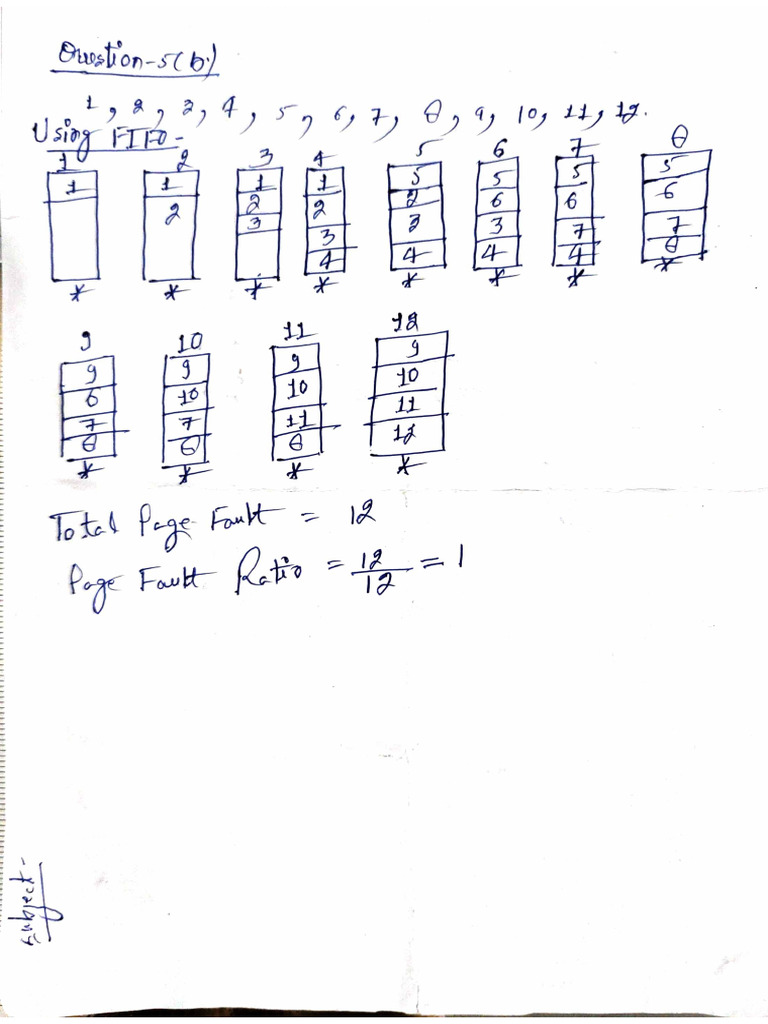 Question-5(b.)
1, 2, 3, 4, 5, 6, 7, 8, 9, 10, 11, 12.
Using FIFO-
1 2 3 4 5 6 7 8
1 1 1 1 5 5 5 5
2 2 2 2 6 6 6
3 3 3 3 7 7
4 4 4 4 8
* * * * * * * *
9 10 11 12
9 9 9 9
6 10 10 10
7 7 11 11
8 8 8 12
* * * *
Total Page Fault = 12
Page Fault Ratio = 12/12 = 1
Subject-